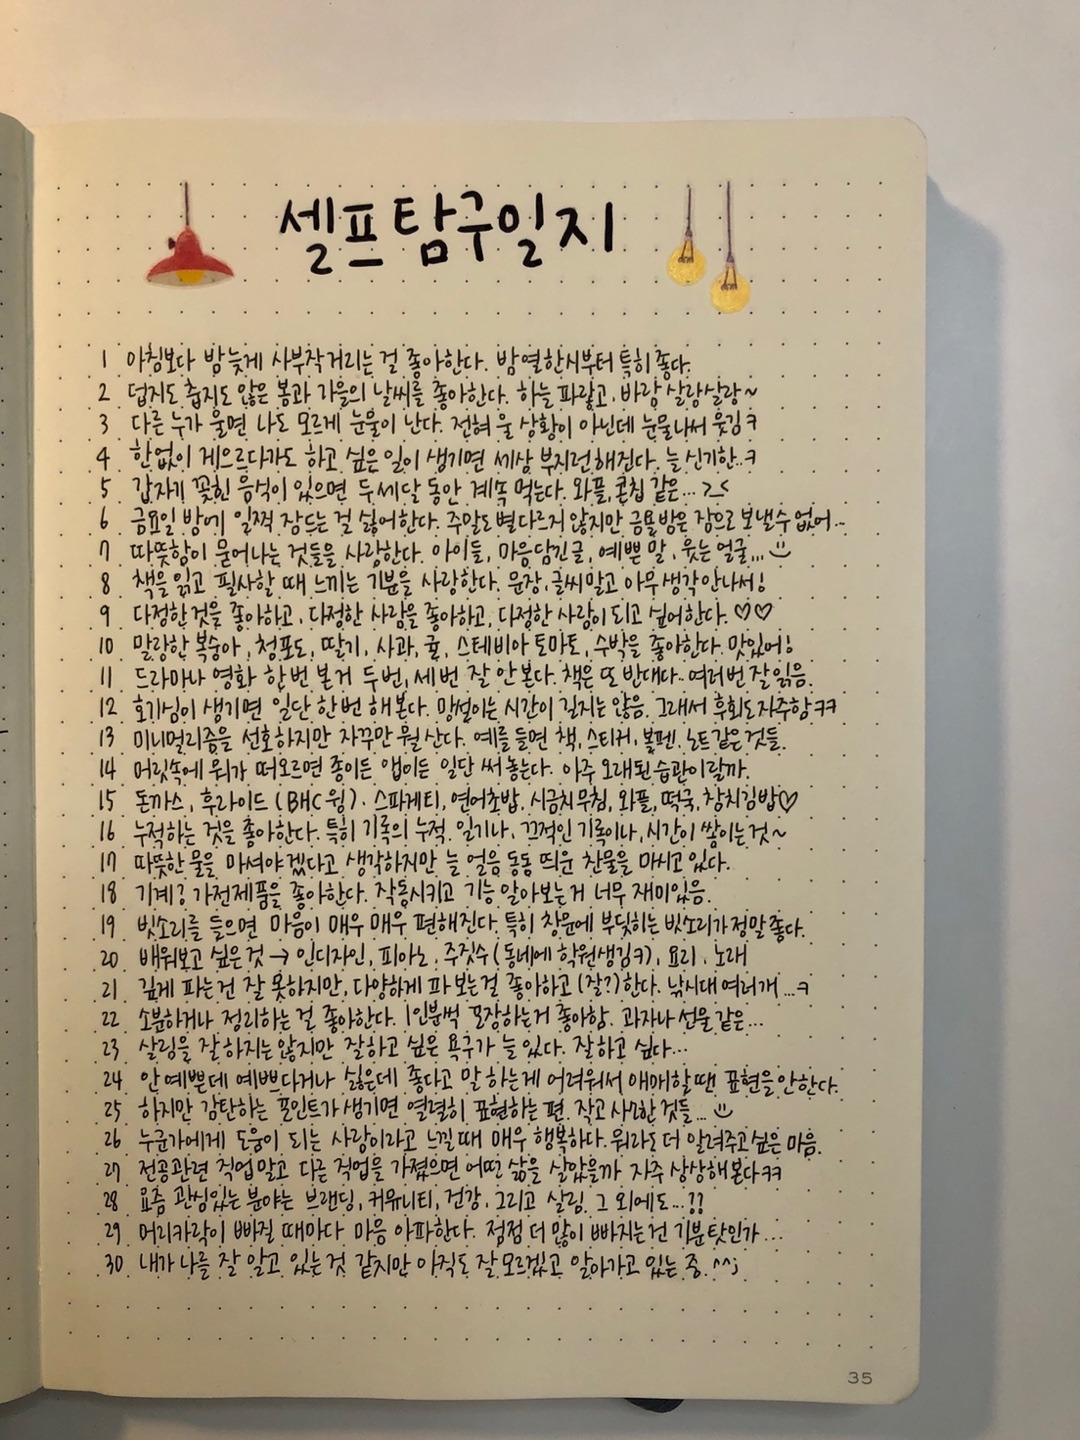 셀프탐구일지
1 아침보다 밤늦게 사부작거리는 걸 좋아한다. 밤 열한시부터 특히 좋다.
2 덥지도 춥지도 않은 봄과 가을의 날씨를 좋아한다. 하늘 파랗고, 바람 살랑살랑~
3 다른 누가 울면 나도 모르게 눈물이 난다. 전혀 울 상황이 아닌데 눈물나서 웃김ㅋ
4 한없이 게으르다가도 하고 싶은 일이 생기면 세상 부지런해진다. 늘 신기한..ㅋ
5 갑자기 꽂힌 음식이 있으면 두세달 동안 계속 먹는다. 와플, 콘칩 같은... >_<
6 금요일 밤에 일찍 잠드는 걸 싫어한다. 주말도 별다르지 않지만 금욜 밤은 잠으로 보낼 수 없어..
7 따뜻함이 묻어나는 것들을 사랑한다. 아이들, 마음담긴 글, 예쁜 말, 웃는 얼굴... :)
8 책을 읽고 필사할 때 느끼는 기분을 사랑한다. 문장, 글씨 말고 아무 생각 안나서!
9 다정한 것을 좋아하고, 다정한 사람을 좋아하고, 다정한 사람이 되고 싶어한다. ♡♡
10 말랑한 복숭아, 청포도, 딸기, 사과, 귤, 스테비아 토마토, 수박을 좋아한다. 맛있어!
11 드라마나 영화 한번 본거 두번, 세번 잘 안본다. 책은 또 반대다.. 여러번 잘 읽음.
12 호기심이 생기면 일단 한번 해본다. 망설이는 시간이 길지는 않음. 그래서 후회도 자주함ㅋㅋ
13 미니멀리즘을 선호하지만 자꾸만 뭘 산다. 예를 들면 책, 스티커, 볼펜, 노트 같은 것들.
14 머릿속에 뭐가 떠오르면 종이든 앱이든 일단 써 놓는다. 아주 오래된 습관이랄까.
15 돈까스, 후라이드 (BHC 윙), 스파게티, 연어초밥, 시금치무침, 와플, 떡국, 참치김밥♡
16 누적하는 것을 좋아한다. 특히 기록의 누적. 일기나, 끄적인 기록이나, 시간이 쌓이는 것~
17 따뜻한 물을 마셔야겠다고 생각하지만 늘 얼음 동동 띄운 찬물을 마시고 있다.
18 기계? 가전제품을 좋아한다. 작동시키고 기능 알아보는거 너무 재미있음.
19 빗소리를 들으면 마음이 매우 매우 편해진다. 특히 창문에 부딪히는 빗소리가 정말 좋다.
20 배워보고 싶은 것 → 인디자인, 피아노, 주짓수 (동네에 학원생김ㅋ), 요리, 노래
21 깊게 파는 건 잘 못하지만, 다양하게 파보는 걸 좋아하고 (잘?) 한다. 낚시대 여러개 ...ㅋ
22 소분하거나 정리하는 걸 좋아한다. 1인분씩 포장하는거 좋아함. 과자나 선물 같은...
23 살림을 잘하지는 않지만 잘하고 싶은 욕구가 늘 있다. 잘하고 싶다...
24 안예쁜데 예쁘다거나 싫은데 좋다고 말하는게 어려워서 애매할 땐 표현을 안한다.
25 하지만 감탄하는 포인트가 생기면 열렬히 표현하는 편. 작고 사소한 것들... :)
26 누군가에게 도움이 되는 사람이라고 느낄 때 매우 행복하다. 뭐라도 더 알려주고 싶은 마음.
27 전공관련 직업 말고 다른 직업을 가졌으면 어떤 삶을 살았을까 자주 상상해본다ㅋㅋ
28 요즘 관심있는 분야는 브랜딩, 커뮤니티, 건강, 그리고 살림. 그 외에도...??
29 머리카락이 빠질 때마다 마음 아파한다. 점점 더 많이 빠지는건 기분 탓인가...
30 내가 나를 잘 알고 있는 것 같지만 아직도 잘 모르겠고 알아가고 있는 중. ^^;
35